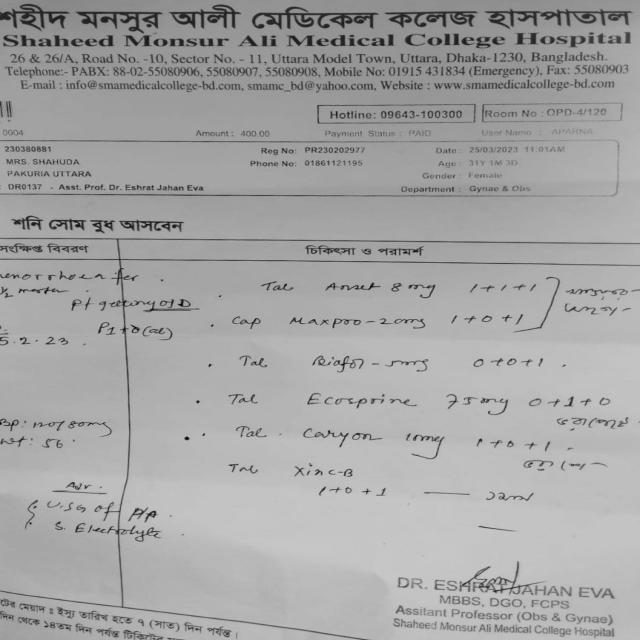 শহীদ মনসুর আলী মেডিকেল কলেজ হাসপাতাল
Shaheed Monsur Ali Medical College Hospital
26 & 26/A, Road No. -10, Sector No. - 11, Uttara Model Town, Uttara, Dhaka-1230, Bangladesh.
Telephone:- PABX: 88-02-55080906, 55080907, 55080908, Mobile No: 01915 431834 (Emergency), Fax: 55080903
E-mail : info@smamedicalcollege-bd.com, smamc_bd@yahoo.com, Website : www.smamedicalcollege-bd.com
Hotline: 09643-100300 Room No : OPD-4/120
0004 Amount : 400.00 Payment Status : PAID User Name : APARNA
230380881 Reg No: PR230202977 Date : 25/03/2023 11:01AM
MRS. SHAHUDA Phone No: 01861121195 Age : 31Y 1M 3D
PAKURIA UTTARA Gender : Female
: DR0137 - Asst. Prof. Dr. Eshrat Jahan Eva Department : Gynae & Obs
শনি সোম বুধ আসবেন
সংক্ষিপ্ত বিবরণ চিকিৎসা ও পরামর্শ
Tab Anset 8 mg 1+1+1
P1+0(
Cap Maxpro-20mg 1+0+1
5.2.23
Tab 5mg 0+0+1
Tab Ecosprine 75mg 0+1+0
Wt: 56
Tab. Caryon 10mg 1+0+1
Tab Xinc-B
1+0+1
Adv.
USG of P/A
S. Electrolyte
DR. ESHRAT JAHAN EVA
MBBS, DGO, FCPS
Assitant Professor (Obs & Gynae)
Shaheed Monsur Ali Medical College Hospital
মেয়াদ : ইস্যু তারিখ হতে ৭ (সাত) দিন পর্যন্ত।
দিন থেকে ১৪তম দিন পর্যন্ত